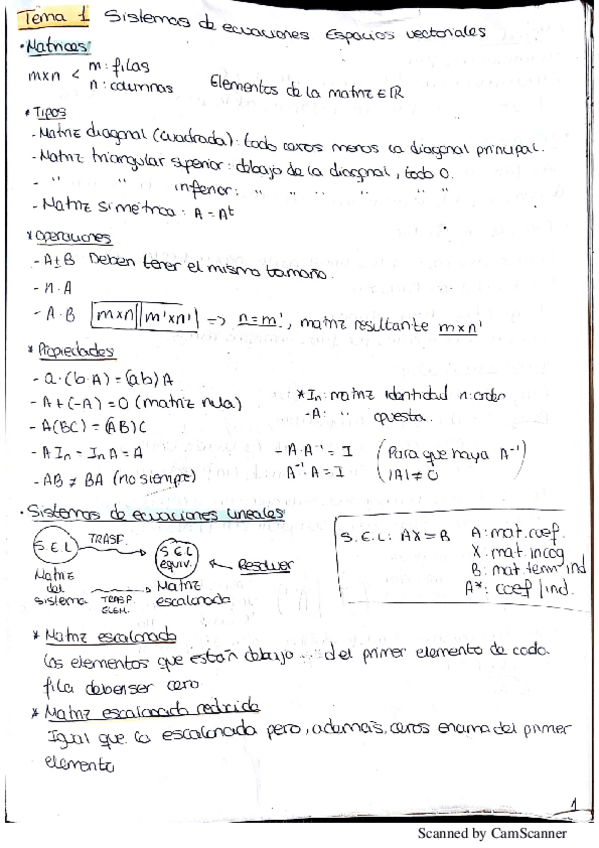 Tema 1 Sistemas de ecuaciones Espacios vectoriales
·Matrices
mxn < m: filas
n: columnas
Elementos de la matriz ∈ ℝ
* Tipos
- Matriz diagonal (cuadrada): todo ceros menos la diagonal principal.
- Matriz triangular superior: debajo de la diagonal, todo 0.
- " " inferior: " " " " " "
- Matriz simétrica: A = Aᵗ
* Operaciones
- A±B Deben tener el mismo tamaño.
- n·A
- A·B |mxn||m'xn'| => n=m', matriz resultante mxn'
* Propiedades
- a·(b·A)=(ab)A
- A+(-A)=0 (matriz nula)
- A(BC)=(AB)C
- A In = In A = A
- AB ≠ BA (no siempre)
* In: matriz identidad n:orden
-A: " opuesta.
- A·A⁻¹ = I
A⁻¹·A = I
(Para que haya A⁻¹
|A| ≠ 0
· Sistemas de ecuaciones lineales
S.E.L TRASF. S.E.L equiv. Resolver
Matriz del sistema TRASF. ELEM. Matriz escalonada
S.E.L: AX=B
A: mat. coef.
X: mat. incog
B: mat term-ind
A*: coef/ind.
* Matriz escalonada
Los elementos que están debajo del primer elemento de cada
fila deben ser cero
* Matriz escalonada reducida
Igual que la escalonada pero, además, ceros encima del primer
elemento
1
Scanned by CamScanner